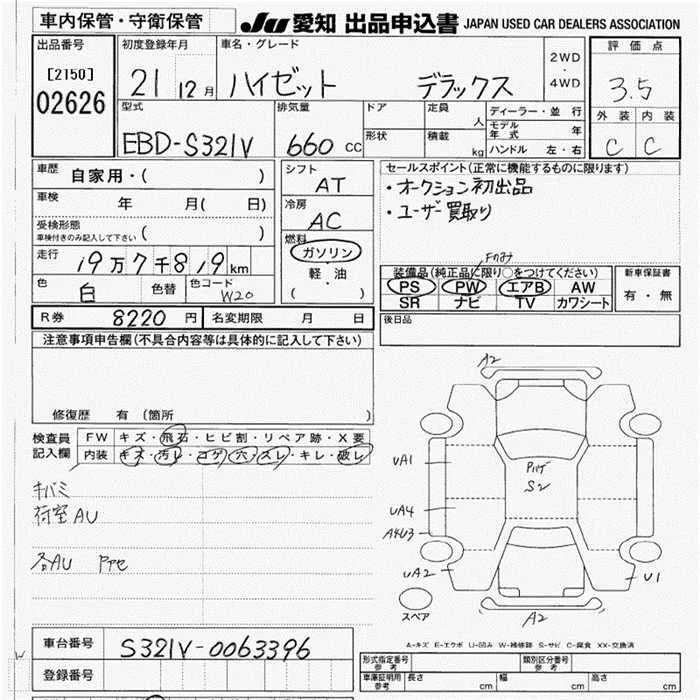 車内保管・守衛保管
JU 愛知 出品申込書 JAPAN USED CAR DEALERS ASSOCIATION
出品番号
[2150]
02626
初度登録年月
21 12月
車名・グレード
ハイゼット デラックス
2WD
・
4WD
評価点
3.5
外装 内装
C C
型式
EBD-S321V
排気量
660 CC
ドア
形状
定員 人
積載 kg
ディーラー・並行
モデル年式 年
ハンドル 左・右
車歴
自家用・( )
車検 年 月( 日)
受検形態
車検付きのみ記入して下さい ( )
走行
19万7千819km
色
白
色替
色コード
W20
シフト
AT
冷房
AC
燃料
ガソリン
・
軽油
( )
セールスポイント(正常に機能するものに限ります)
・オークション初出品
・ユーザー買取り
Fのみ
装備品(純正品に限り○をつけてください)
PS PW エアB AW
SR ナビ TV カワシート
新車保証書
有・無
R券 8220 円
名変期限 月 日
後日品
注意事項申告欄(不具合内容等は具体的に記入して下さい)
修復歴 有(箇所 )
検査員
記入欄
FW キズ・飛石・ヒビ割・リペア跡・X要
内装 キズ・汚レ・コゲ・穴・スレ・キレ・破レ
キバミ
荷室AU
各AU
A2
UA1
S2
UA4
A4U3
UA2
U1
スペア
A2
A-キズ E-エクボ U-凹み W-補修跡 S-サビ C-腐食 XX-交換済
車台番号
S321V-0063396
登録番号
形式指定番号
参考
類別区分番号
参考
車庫証明用
参考
長さ cm
幅 cm
高さ cm
W